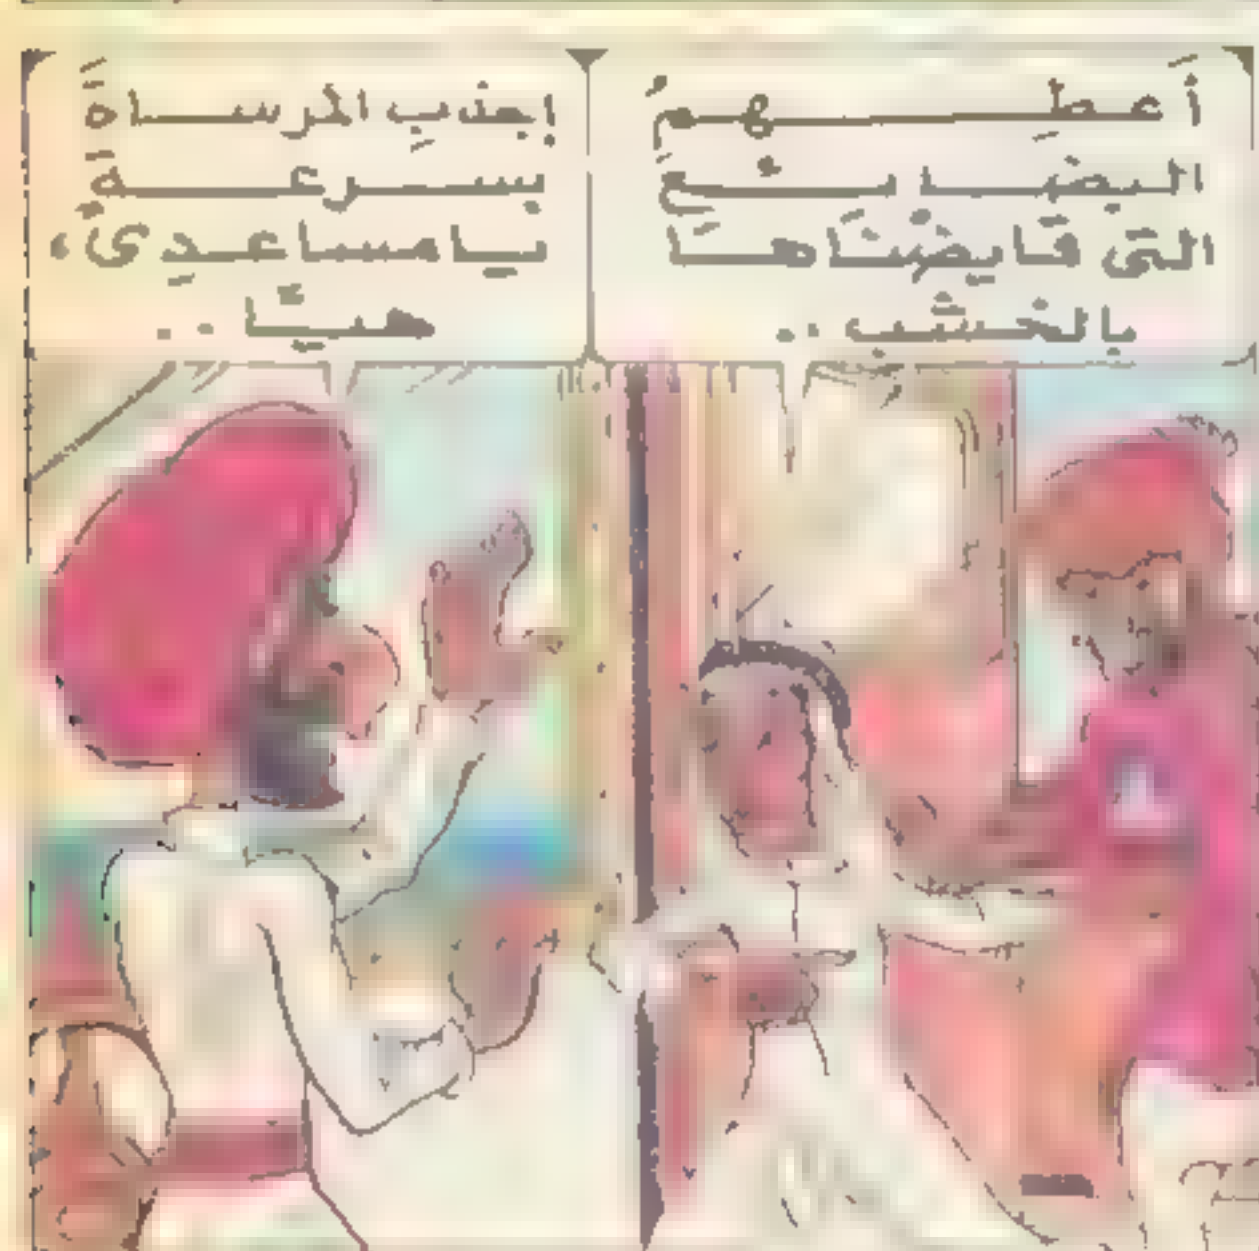 أَعطِهمُ
البضائعَ
التى قَايضْنَاهَا
بالخشَبِ ..
إجذبِ المرساةَ
بسرعةٍ
يامساعدِى،
هيَّا ..